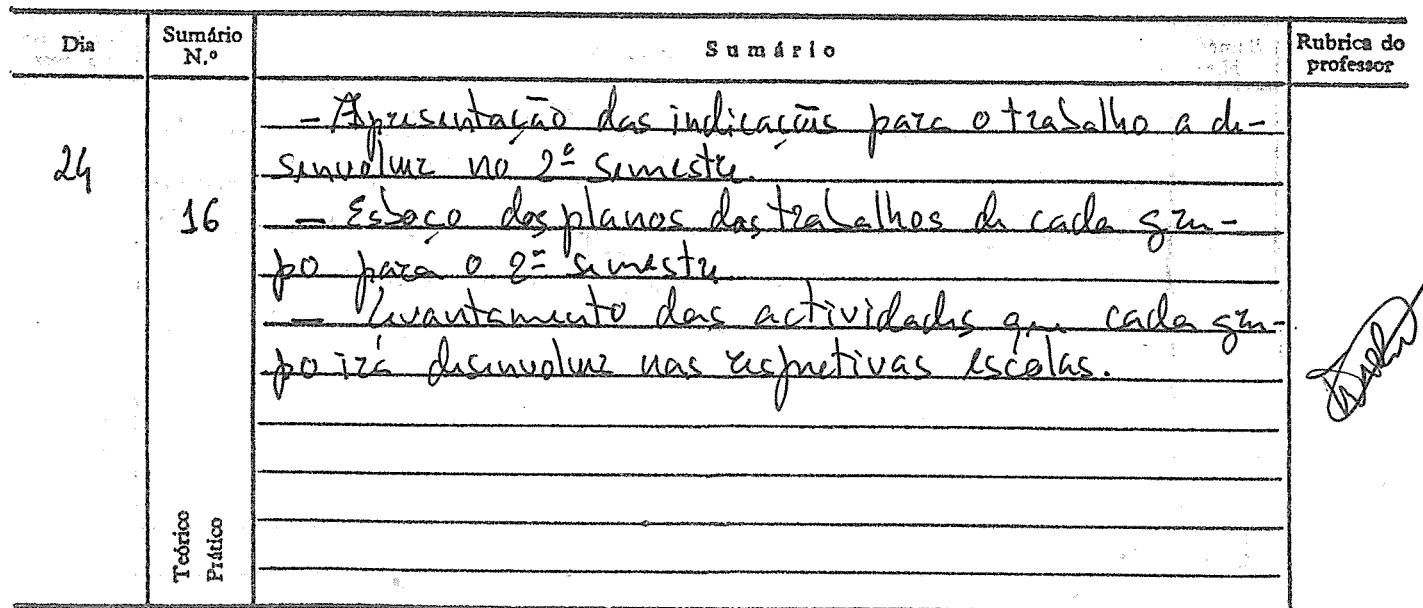 Dia Sumário N.º Sumário Rubrica do professor
- Apresentação das indicações para o trabalho a de-
24 senvolver no 2º semestre.
16 - Esboço dos planos dos trabalhos de cada gru-
po para o 2º semestre
- Levantamento das actividades que cada gru-
po irá desenvolver nas respetivas escolas.
Teórico
Prático